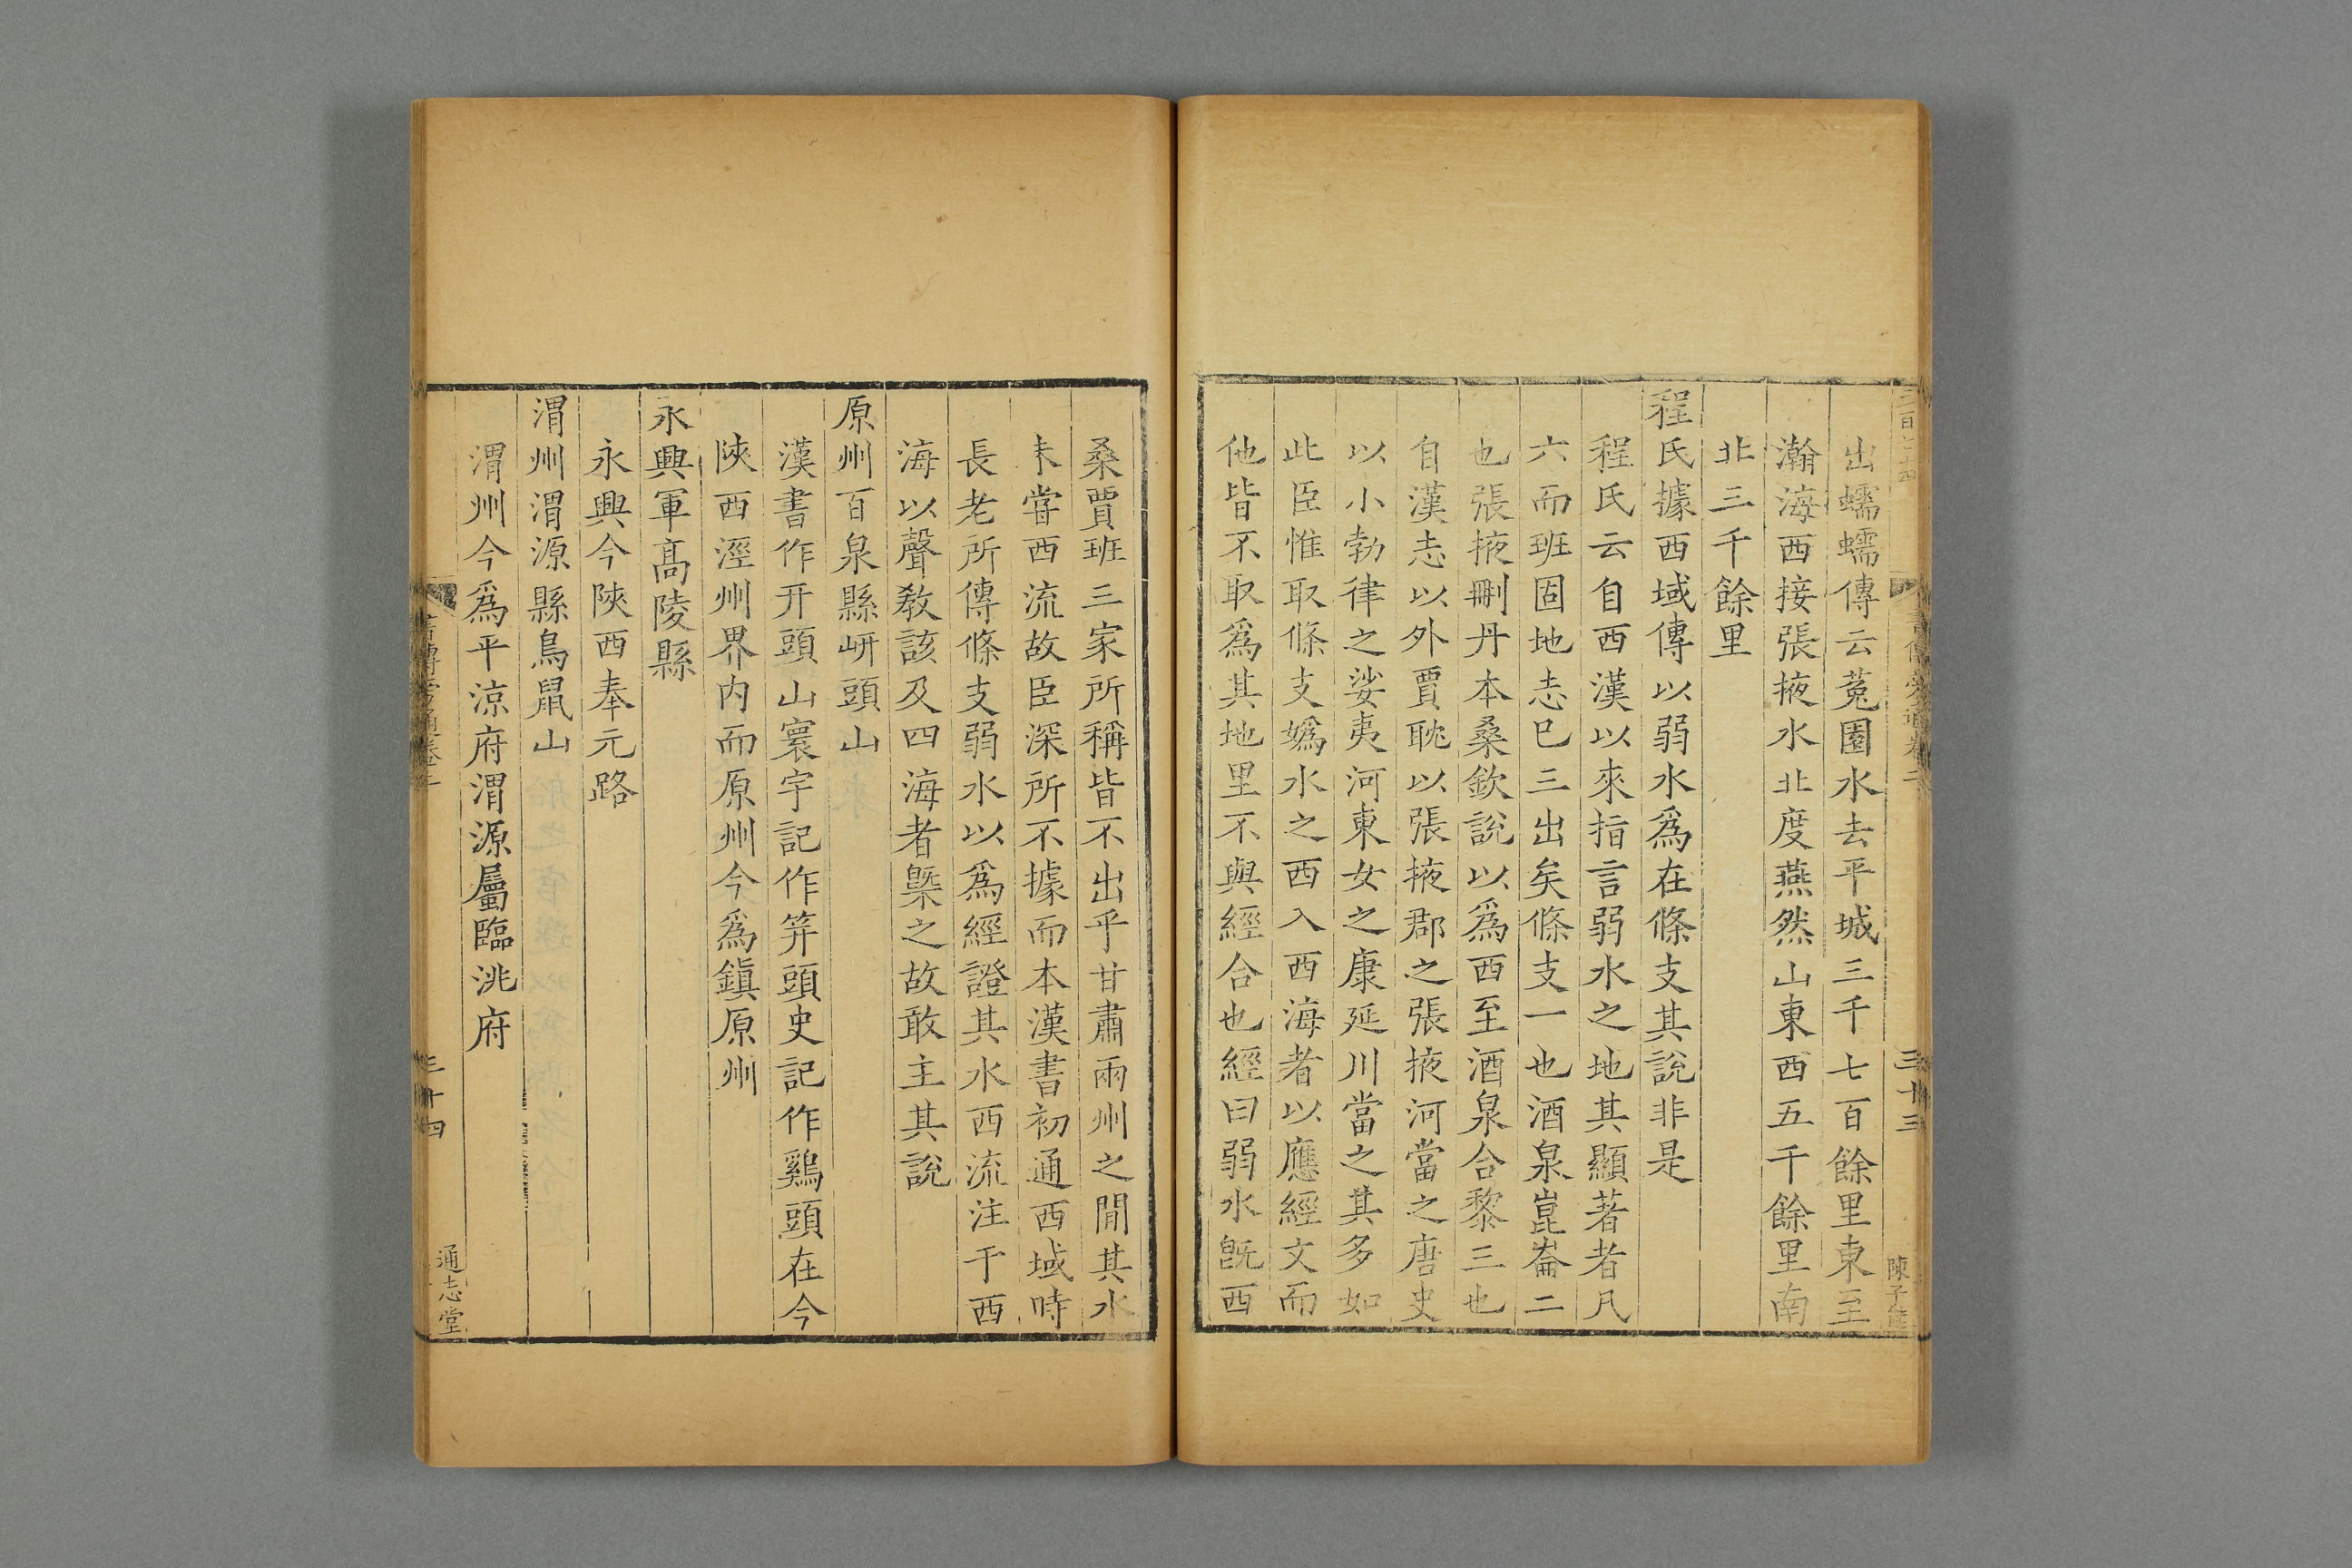 出蠕蠕傳云菟園水去平城三千七百餘里東至
瀚海西接張掖水北度燕然山東西五千餘里南
北三千餘里
程氏據西域傳以弱水爲在條支其說非是
程氏云自西漢以來指言弱水之地其顯著者凡
六而班固地志巳三出矣條支一也酒泉崑崙二
也張掖刪丹本桑欽說以爲西至酒泉合黎三也
自漢志以外賈耽以張掖郡之張掖河當之唐史
以小勃律之娑夷河東女之康延川當之其多如
此臣惟取條支嬀水之西入西海者以應經文而
他皆不取爲其地里不與經合也經曰弱水旣西
桑賈班三家所稱皆不出乎甘肅兩州之閒其水
未甞西流故臣深所不據而本漢書初通西域時
長老所傳條支弱水以爲經證其水西流注于西
海以聲敎該及四海者槩之故敢主其說
原州百泉縣岍頭山
漢書作幵頭山寰宇記作笄頭史記作鷄頭在今
陝西涇州界内而原州今爲鎮原州
永興軍髙陵縣
永興今陝西奉元路
渭州渭源縣鳥鼠山
渭州今爲平涼府渭源屬臨洮府
三十三
陳子能
三十四
通志堂